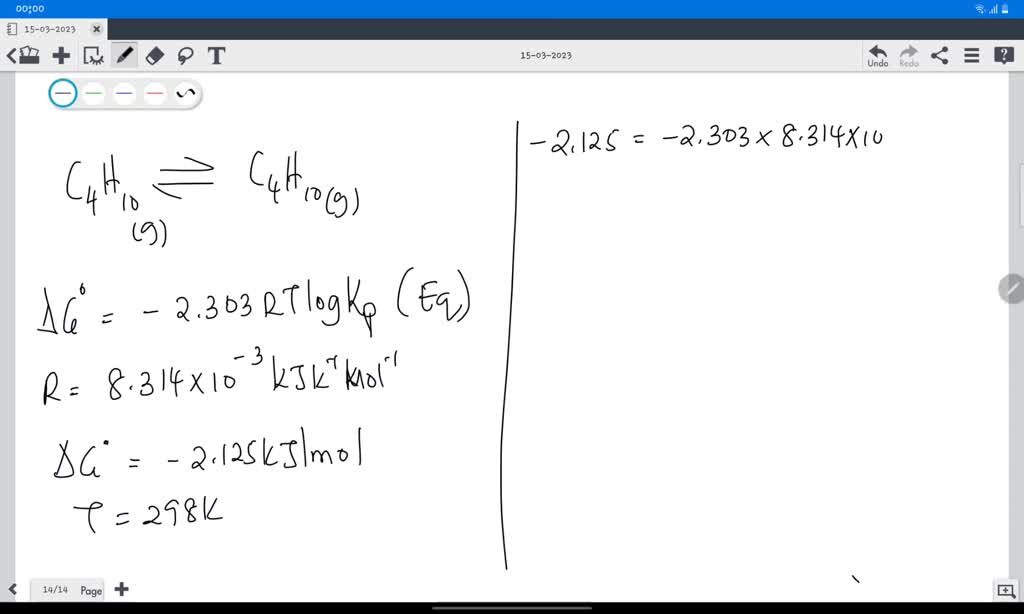 00:00
15-03-2023
T
15-03-2023
Undo
Redo
C₄H₁₀(g) ⇌ C₄H₁₀(g)
ΔG° = - 2.303 RT log Kp (Eq)
R = 8.314×10⁻³ kJK⁻¹mol⁻¹
ΔG° = - 2.125kJ/mol
T = 298K
-2.125 = -2.303 × 8.314×10
14/14 Page